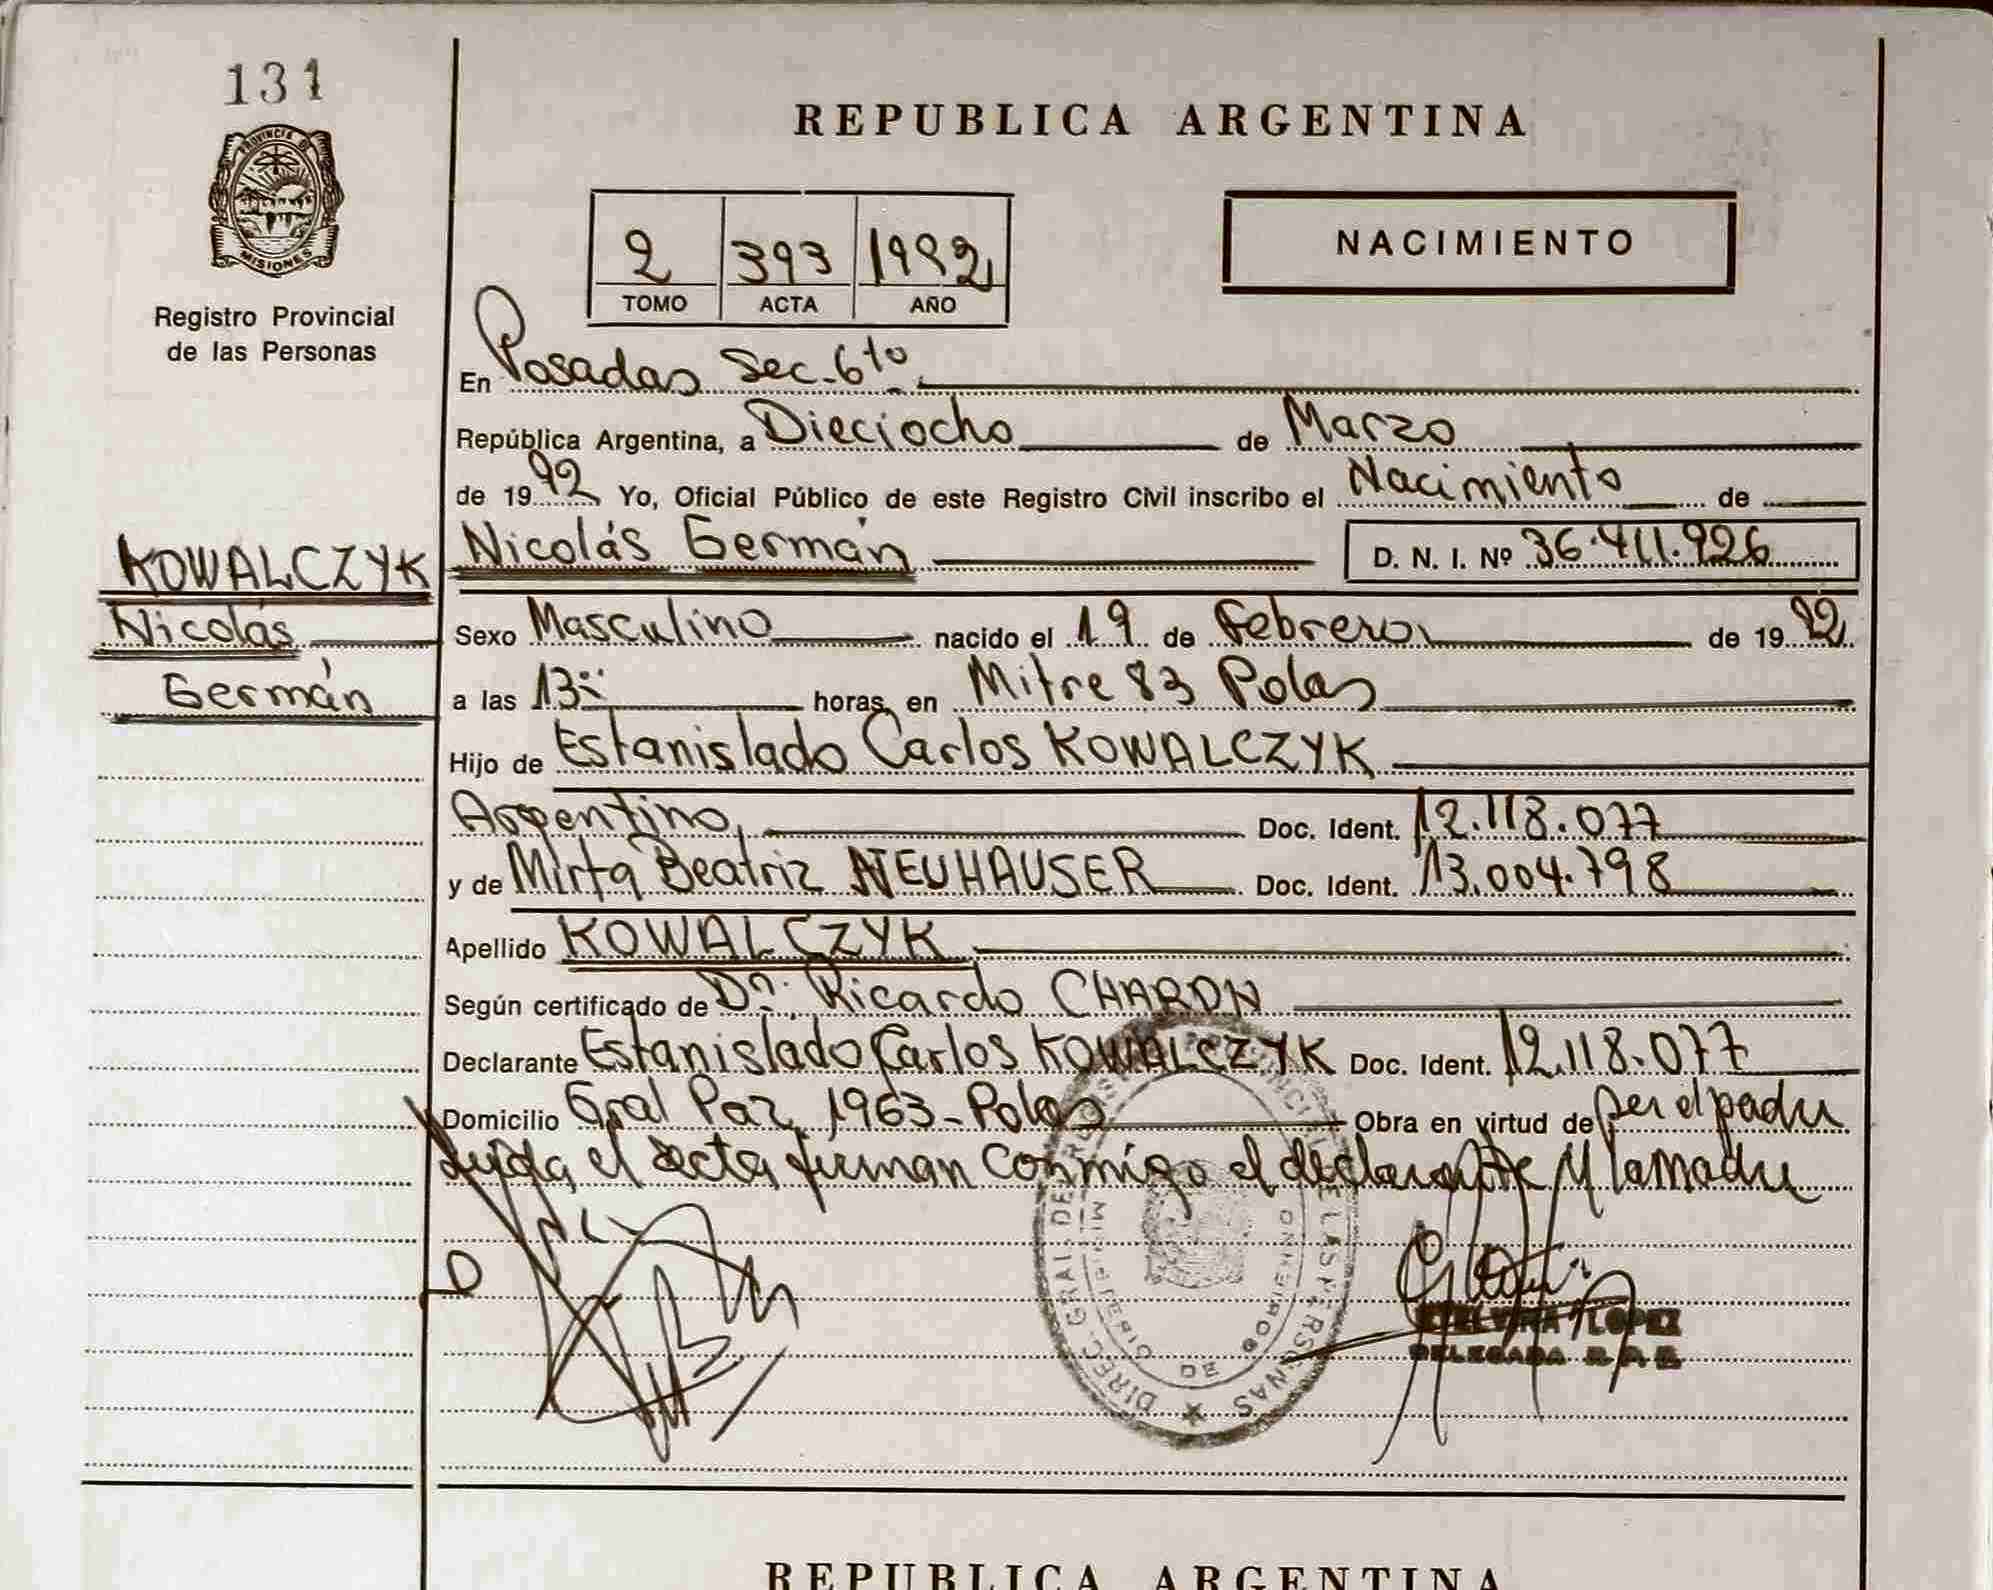 131
PROVINCIA DE
MISIONES
Registro Provincial
de las Personas
REPUBLICA ARGENTINA
NACIMIENTO
2 393 1992
TOMO ACTA AÑO
En Posadas Sec. 6to
República Argentina, a Dieciocho de Marzo
de 1992 Yo, Oficial Público de este Registro Civil inscribo el Nacimiento de
KOWALCZYK
Nicolás
Germán
Nicolás Germán D. N. I. Nº 36.411.926
Sexo Masculino nacido el 19 de Febrero de 1992
a las 13 horas, en Mitre 83 Pdas
Hijo de Estanislado Carlos KOWALCZYK
Argentino, Doc. Ident. 12.118.077
y de Mirta Beatriz NEUHAUSER Doc. Ident. 13.004.798
Apellido KOWALCZYK
Según certificado de Dr. Ricardo
Declarante Estanislado Carlos KOWALCZYK Doc. Ident. 12.118.077
Domicilio Gral Paz 1963 - Pdas Obra en virtud de ser el padre
leída el acta firman conmigo el declarante y la madre
DIREC. GRAL. DE LAS PERSONAS
MINISTERIO DE GOBIERNO
LOPEZ
DELEGADA R. P. P.
REPUBLICA ARGENTINA